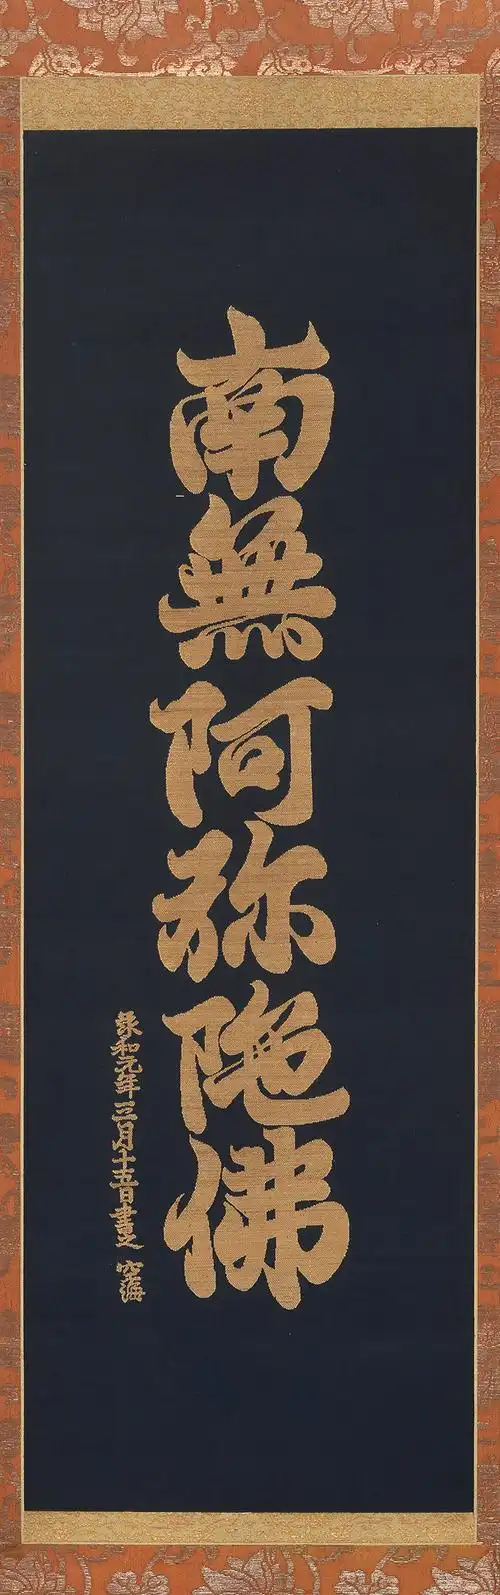 南無阿弥陀佛
承和元年三月十五日書之 空海